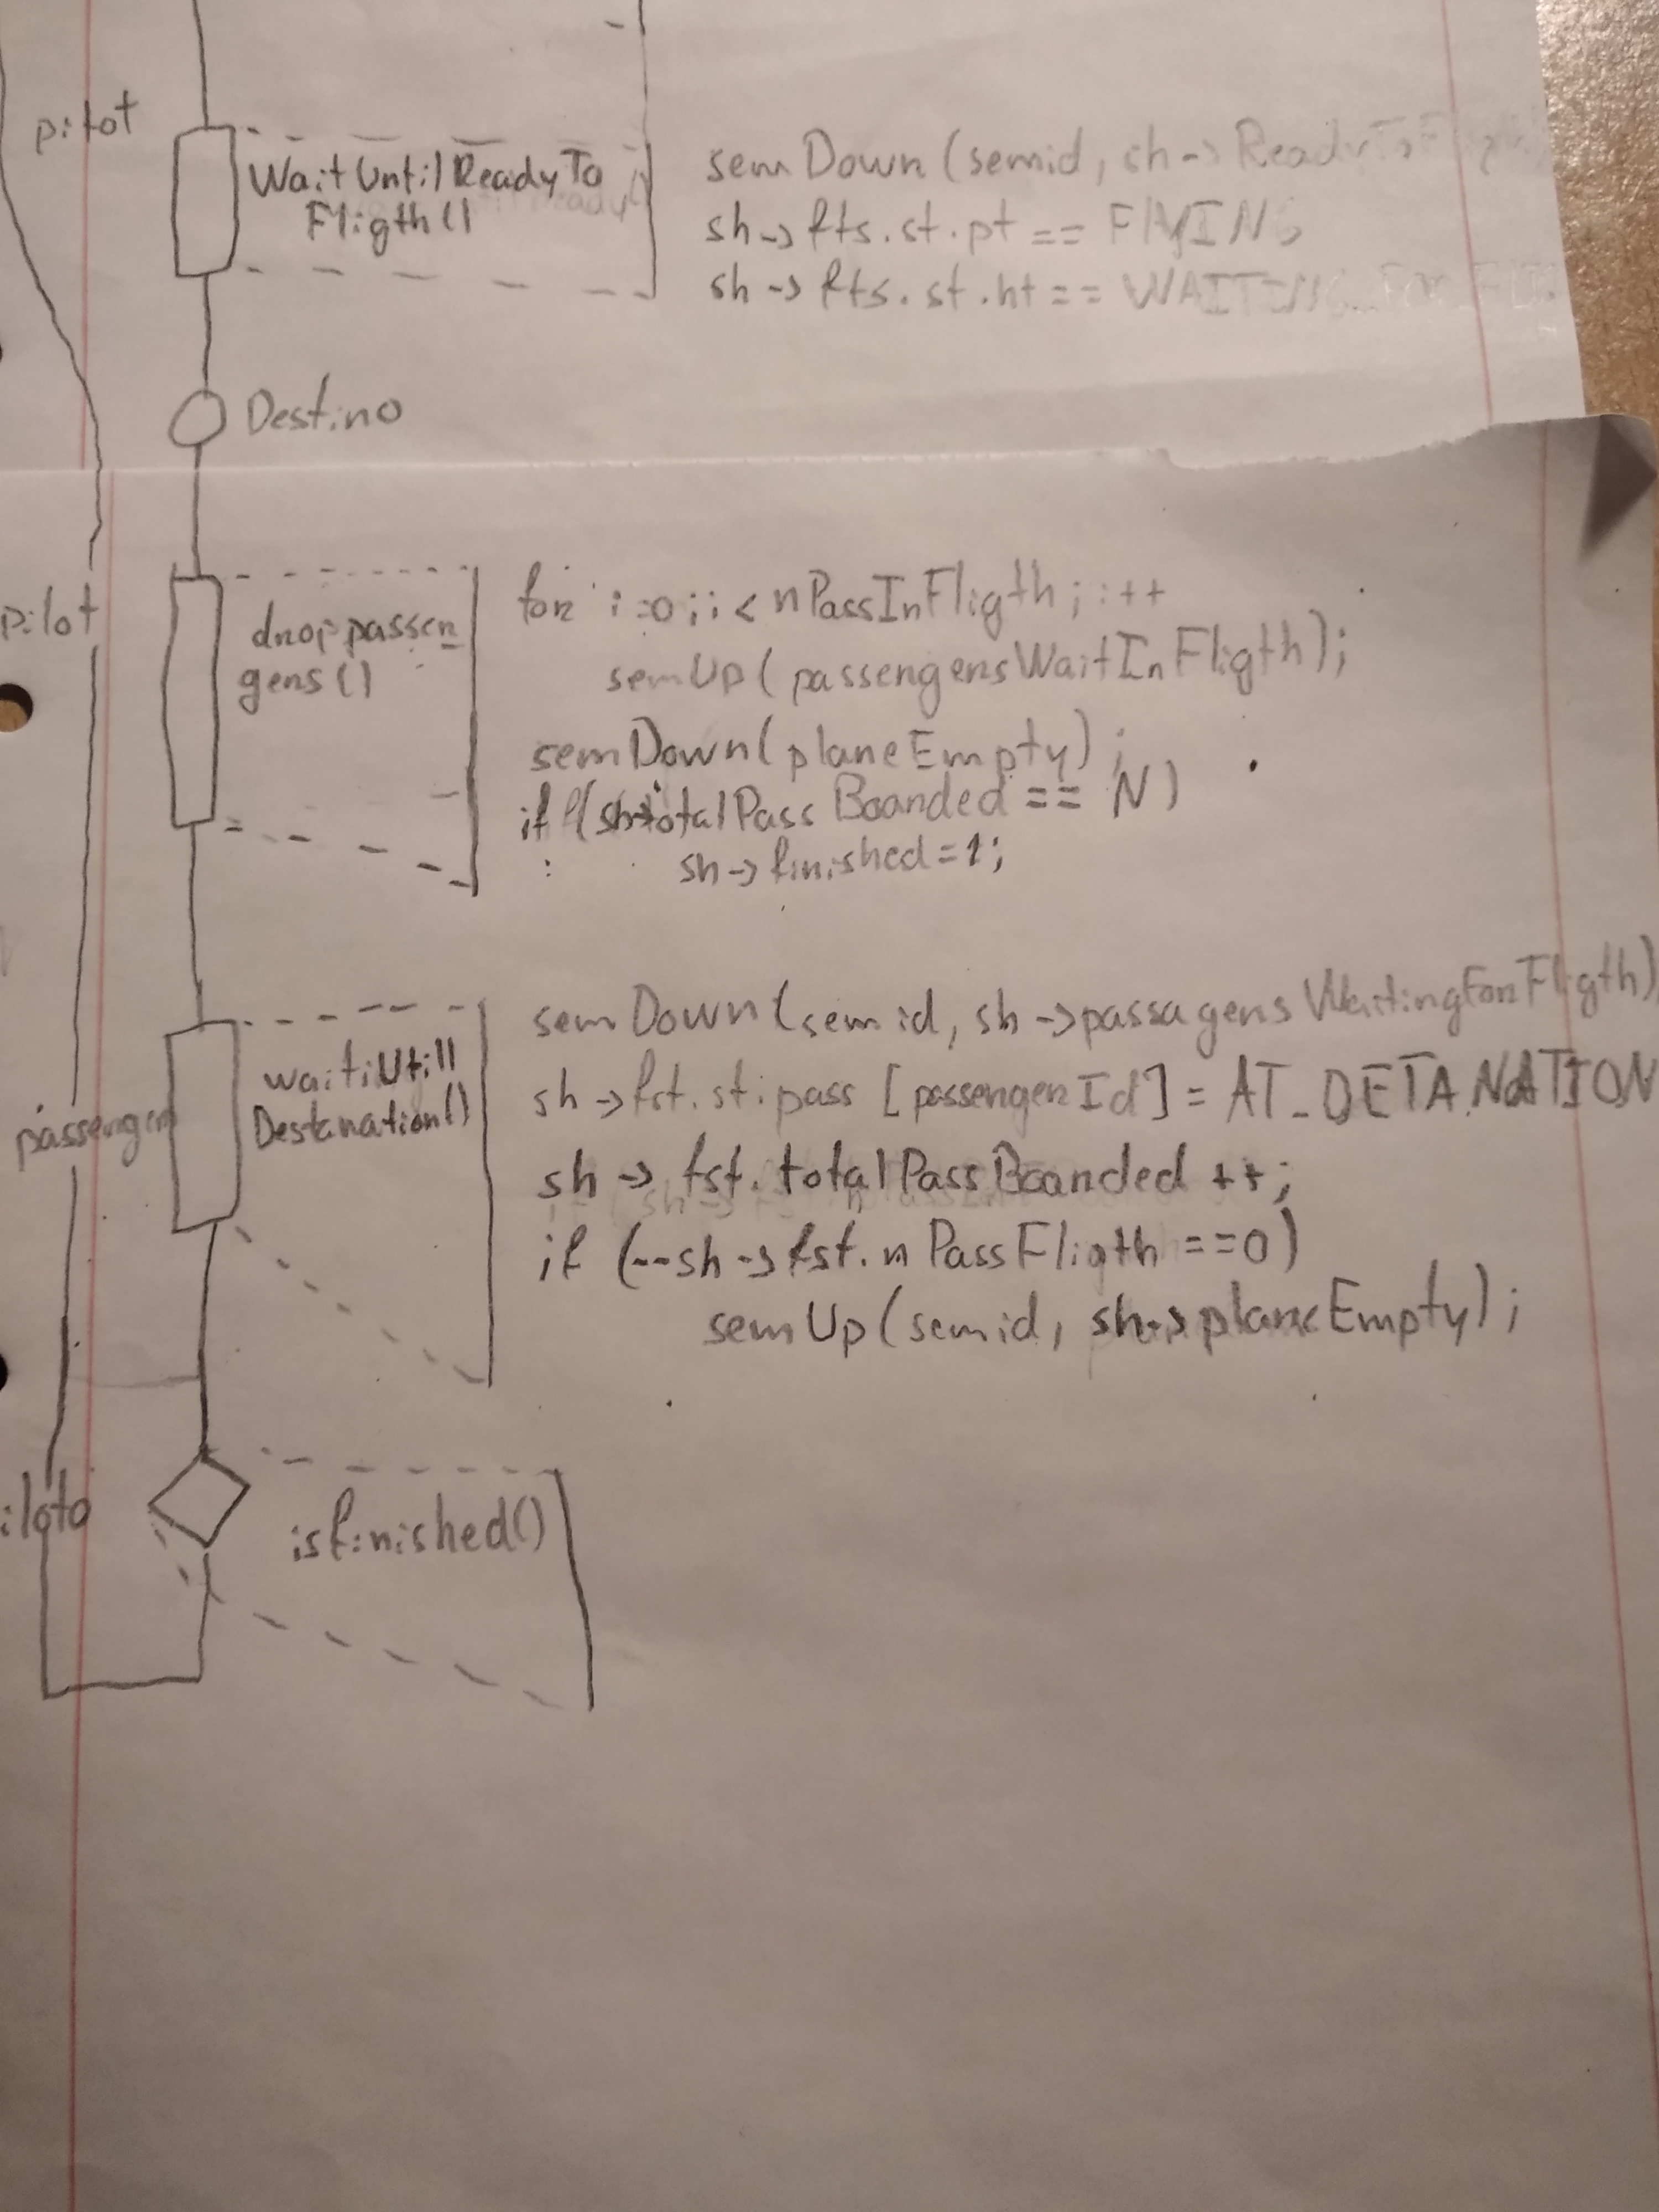 pilot
Wait Until Ready To
Fligth()
semDown (semid, sh->ReadyTo
sh->fts.st.pt == FlYING
sh->fts.st.ht == WAITING_FOR
Destino
pilot
drop passen
gers()
for i=0; i < nPassInFligth; i++
semUp(passengersWaitInFligth);
semDown(planeEmpty);
if (sh->totalPassBoarded == N)
sh->finished=1;
passenger
waitiUtill
Destanation()
semDown(semid, sh->passagersWaitingForFligth)
sh->fst.st.pass [passengerId] = AT_DETANATION
sh->fst.totalPassBoarded ++;
if (--sh->fst.nPassFligth ==0)
semUp(semid, sh->planeEmpty);
iloto
isfinished()